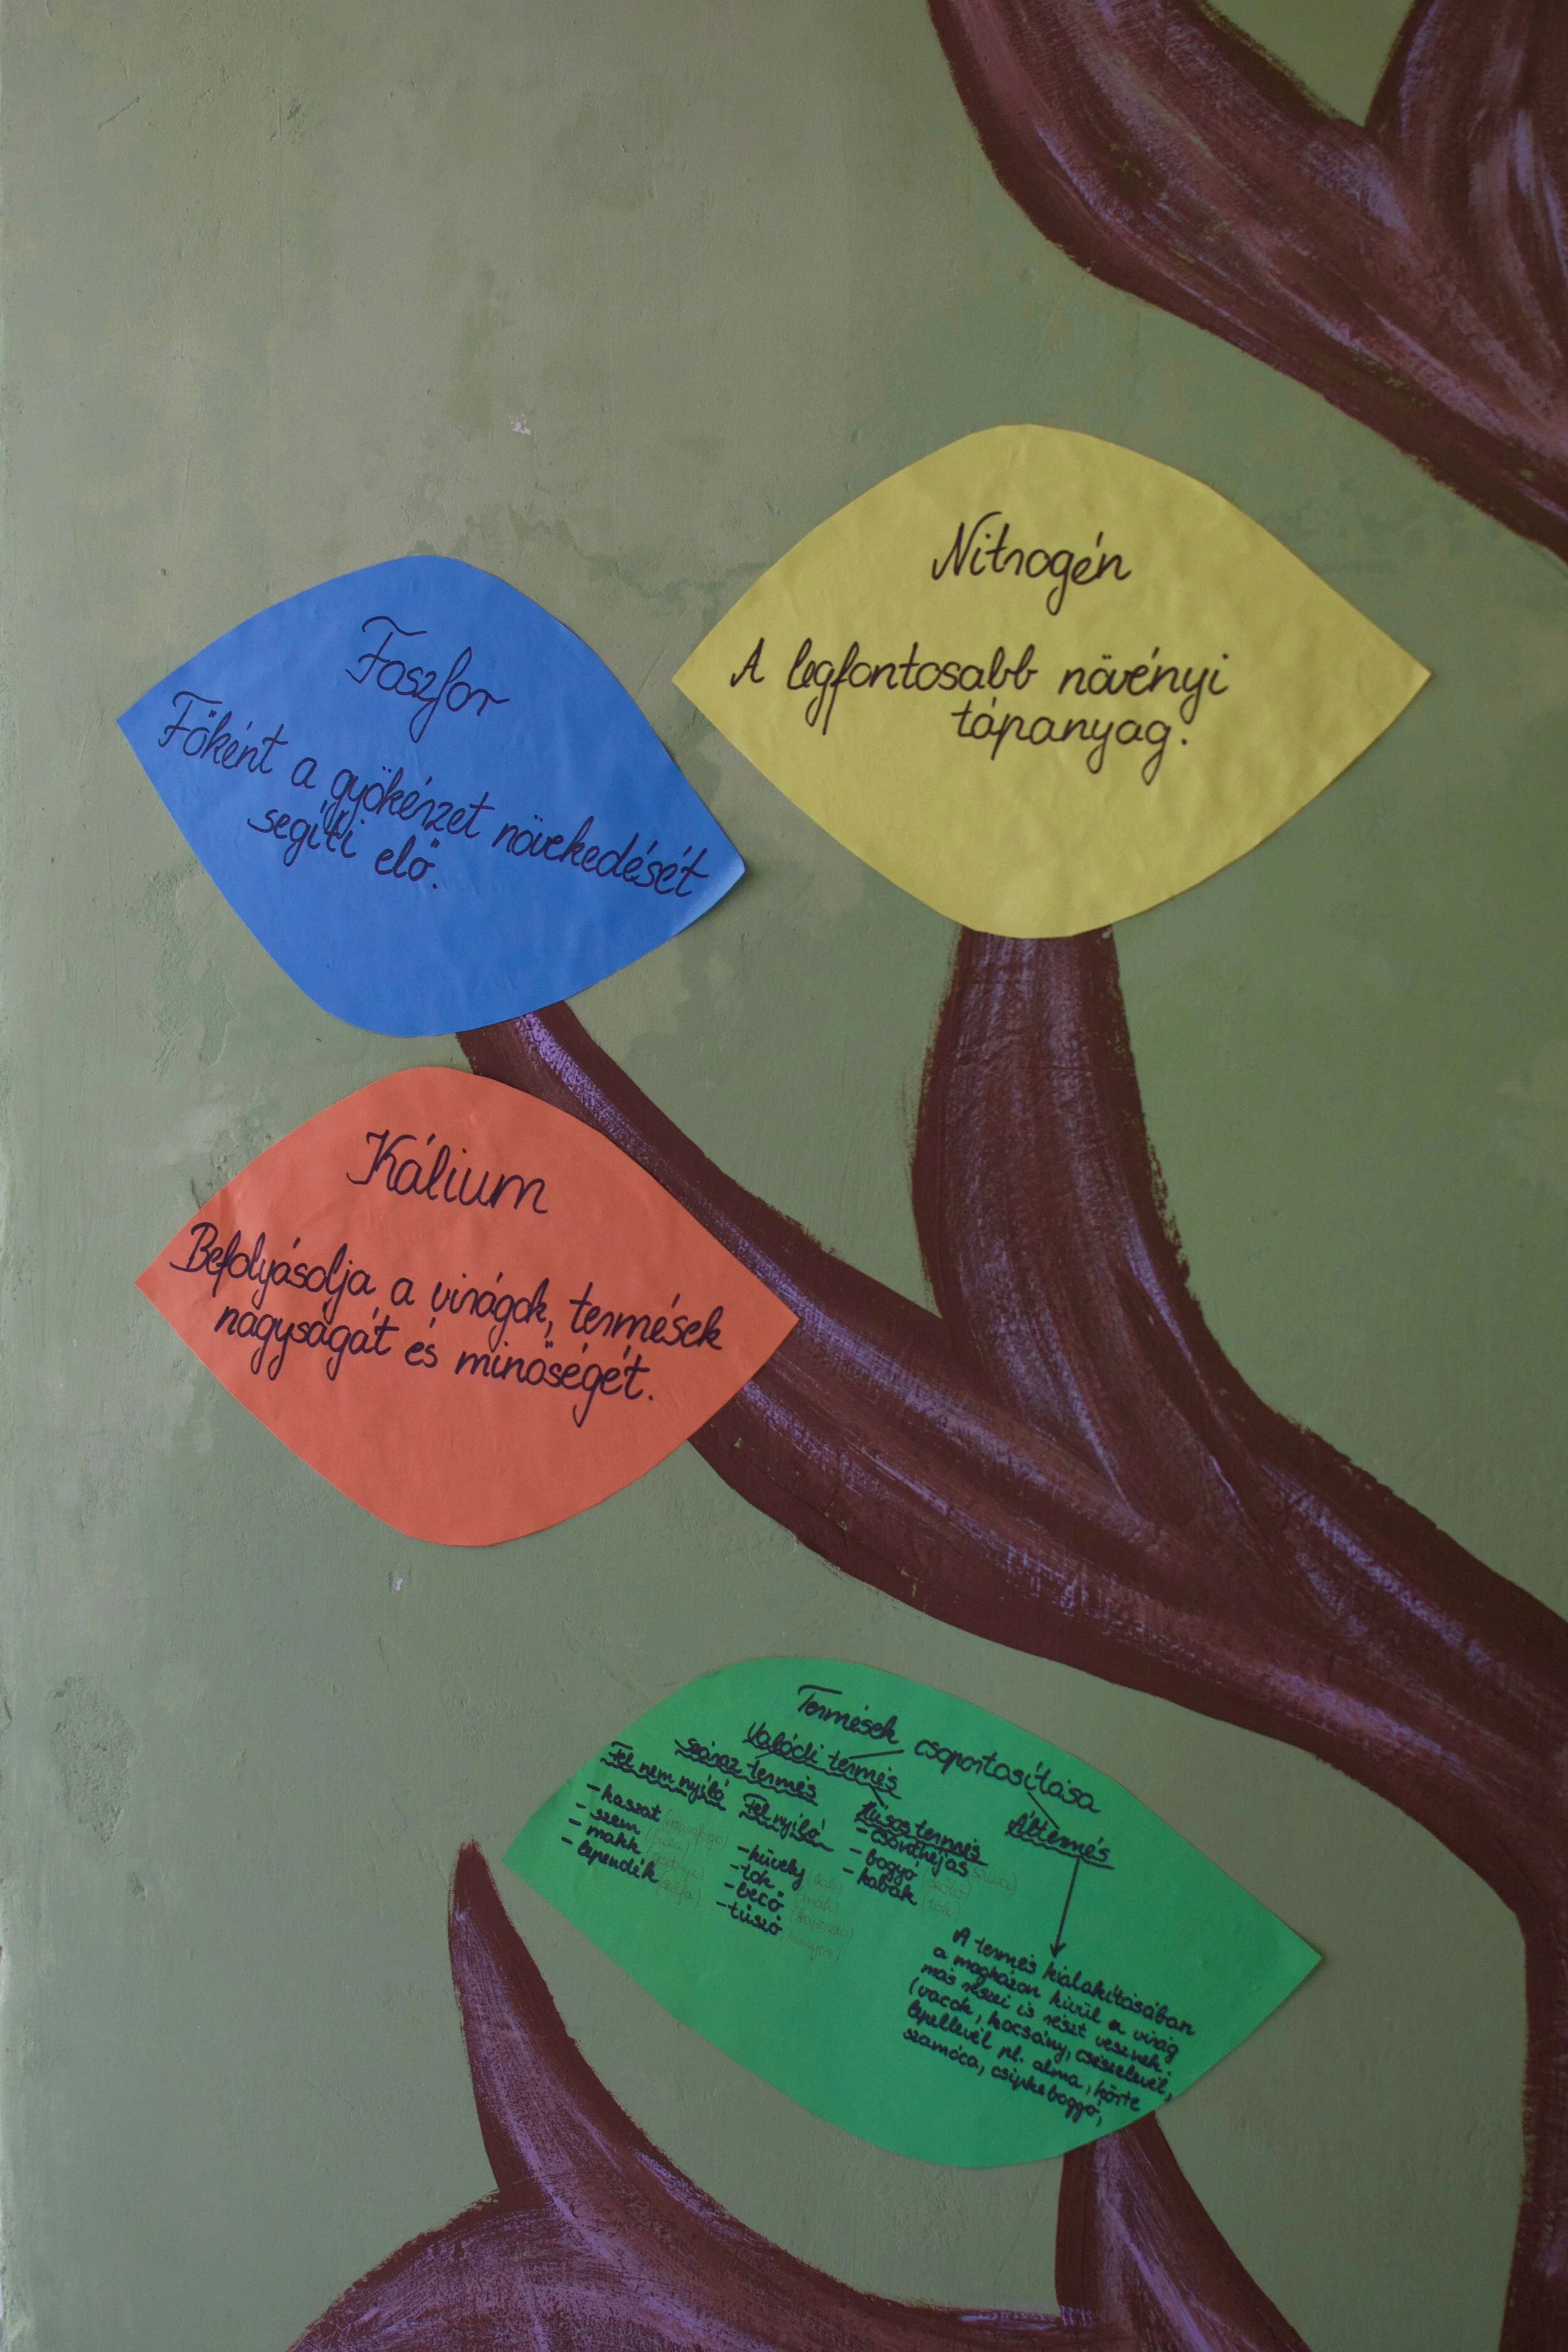 Nitrogén
A legfontosabb növényi
tápanyag.
Foszfor
Főként a gyökérzet növekedését
segíti elő.
Kálium
Befolyásolja a virágok, termések
nagyságát és minőségét.
Termések csoportosítása
Valódi termés
száraz termés
Fel nem nyíló
- kaszat
- szem (búza)
- makk
- lependék (szilfa)
Felnyíló
- hüvely (bab)
- tok (mák)
- becő (káposzta)
- tüsző
Húsos termés
- csonthéjas (szilva)
- bogyó (szőlő)
- kabak (tök)
Áltermés
A termés kialakításában
a magházon kívül a virág
más részei is részt vesznek.
(vacok, kocsány, csészelevél,
lepellevél pl. alma, körte
szamóca, csipkebogyó,